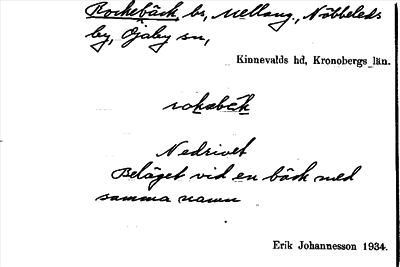 Rockebäck, bs, Mellang., Nöbbeleds
by, Öjaby sn,
Kinnevalds hd, Kronobergs län.
rokabäk
Nedrivet
Beläget vid en bäck med
samma namn
Erik Johannesson 1934.